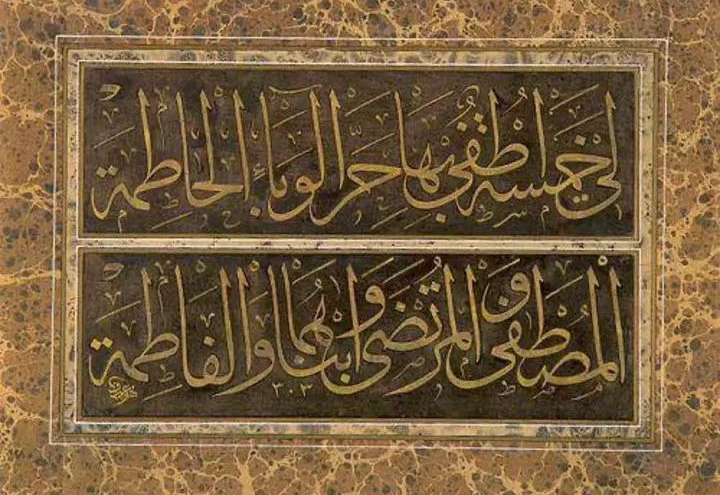 لِي خَمْسَةٌ أُطْفِي بِهَا حَرَّ الْوَبَاءِ الْحَاطِمَةِ
الْمُصْطَفَى وَالْمُرْتَضَى وَابْنَاهُمَا وَالْفَاطِمَةِ
٣٠٣